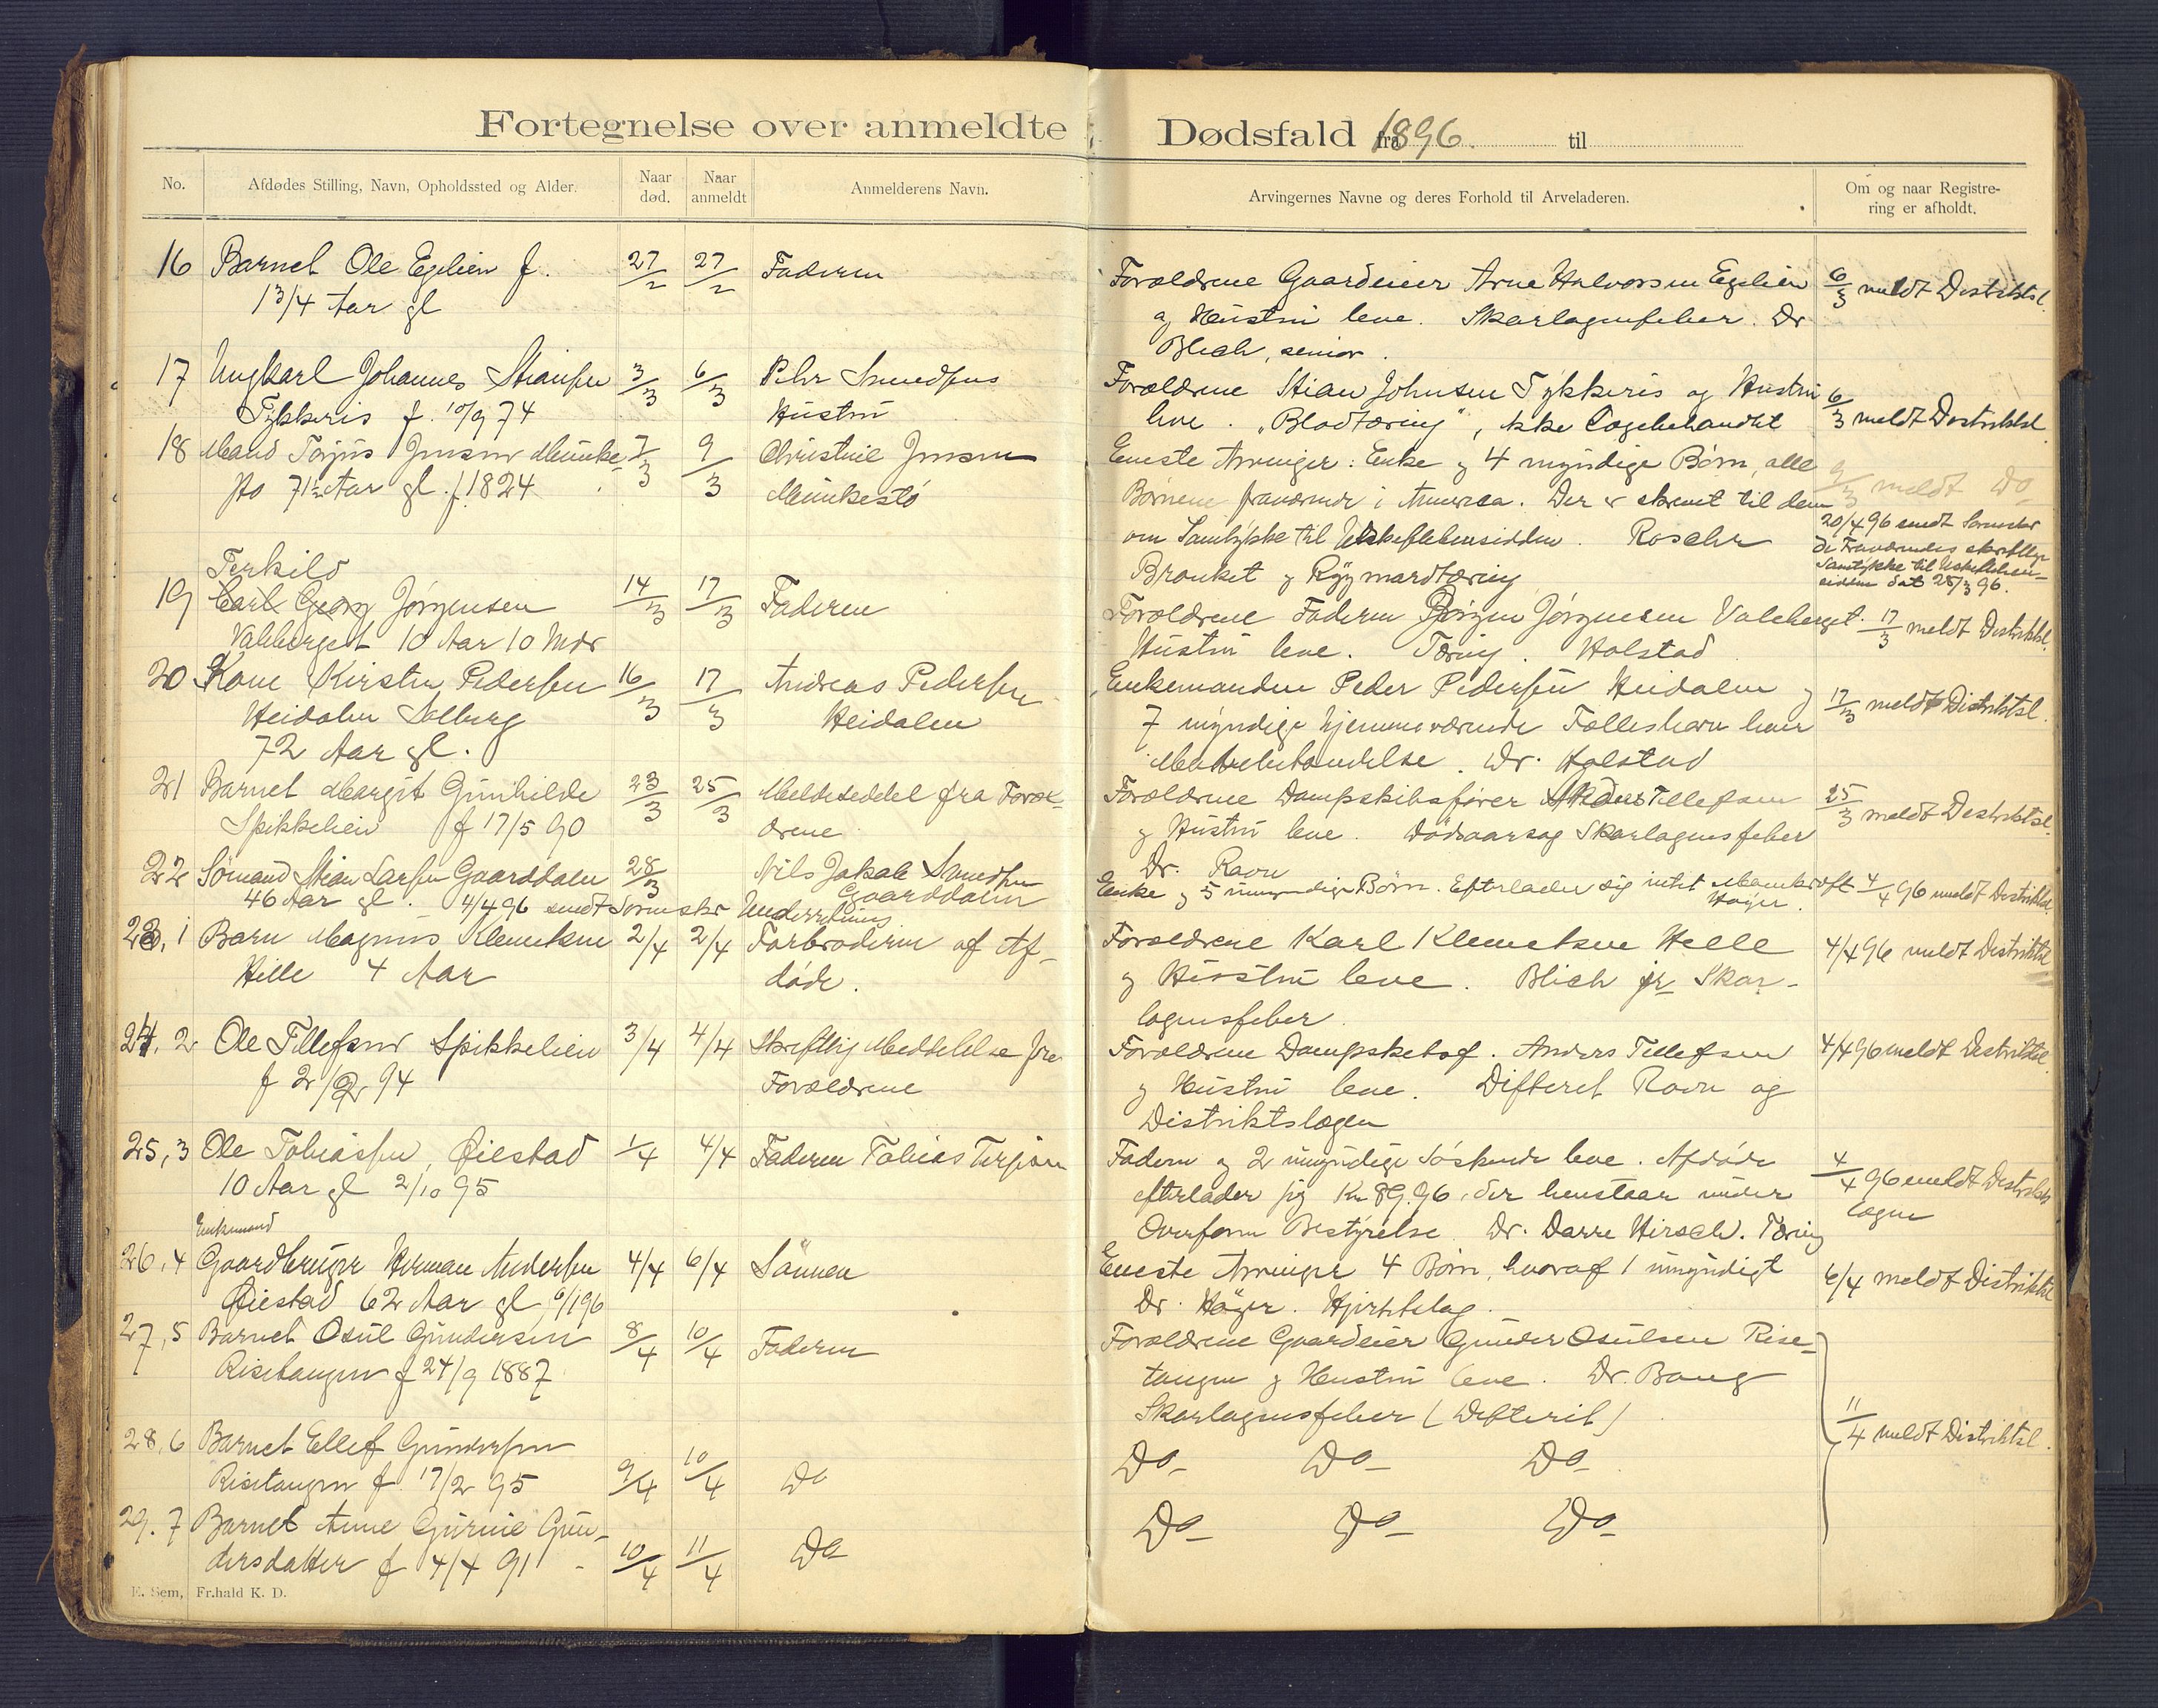 Fortegnelse over anmeldte Dødsfald fra 1896. til
No.
Afdødes Stilling, Navn, Opholdssted og Alder.
Naar død.
Naar anmeldt
Anmelderens Navn.
Arvingernes Navne og deres Forhold til Arveladeren.
Om og naar Registre-
ring er afholdt.
16 Barnet Ole Egelien f. 27/2 27/2 Faderen
1 3/4 Aar gl
Forældrene Gaardeier Arne Halvorsen Egelien
og Hustru leve. Skarlagensfeber. Dr
Blich, senior.
6/3 meldt Distriktsl.
17 Ungkarl Johannes Stiansen 3/3 6/3 Pehr Svendsens
Tykkeris f. 10/9 74 Hustru
Forældrene Stian Johnsen Tykkeris og Hustru
leve. „Blodtæring“, ikke Lægebehandlet
6/3 meldt Distriktsl.
18 Mand Torjus Jensen Munke- 7/3 9/3 Christine Jensen
stø 71½ Aar gl. f. 1824 Munkestø
Eneste Arvinger: Enke og 4 myndige Børn, alle
Børnene fraværende i America. Der er skrevet til dem
om Samtykke til Uskiftebensidden. Roscher
Bronket og Rygmarvtæring
9/3 meldt Do
20/4 96 sendt Sorenskr
de Fraværendes skriftlige
Samtykke til Uskifteben-
sidden dat 25/3 96.
Terkild
19 Carl Georg Jørgensen 14/3 17/3 Faderen
Valeberget 10 Aar 10 Mdr
Forældrene Faderen Jørgen Jørgensen Valeberget.
Hustru leve. Tæring. Holstad
17/3 meldt Distriktsl.
20 Kone Kirsten Pedersen 16/3 17/3 Andreas Pedersen
Heidalen Solberg Heidalen
72 Aar gl.
Enkemanden Peder Pedersen Heidalen og
7 myndige hjemmeværende Fællesbørn lever
behandelse. Dr. Holstad
17/3 meldt Distriktsl.
21 Barnet Margit Gunhilde 23/3 25/3 Meldeseddel fra Foræl-
Spikkelien f 17/5 90 drene
Forældrene Dampskibsfører Anders Tellefsen
og Hustru leve. Dødsaarsag Skarlagensfeber
Dr. Ravn
25/3 meldt Distriktsl.
22 Sømand Stian Larsen Gaarddalen 28/3 Nils Jakob Svendsen
46 Aar gl. 4/4 96 sendt Sorenskr Underretning Gaarddalen
Enke og 5 umyndige Børn. Efterlader sig intet
Høyer.
4/4 96 meldt Distriktsl.
23, 1 Barn Magnus Klemetsen 2/4 2/4 Farbroderen af Af-
Helle 4 Aar døde.
Forældrene Karl Klemetsen Helle
og Hustru leve. Blich jr Skar-
lagensfeber.
4/4 96 meldt Distriktsl
24, 2 Ole Tellefsen Spikkelien 3/4 4/4 Skriftlig Meddelelse fra
f 2/2 94 Forældrene
Forældrene Dampskibsf. Anders Tellefsen
og Hustru leve. Difterit Ravn og
Distriktslægen
4/4 96 meldt Distriktsl.
25, 3 Ole Tobiassen, Øiestad 1/4 4/4 Faderen Tobias Terjesen
10 Aar gl 2/10 95
Faderen og 2 umyndige Søskende leve. Afdøde
efterlader sig Kr 89.96, der henstaar under
Overform Bestyrelse. Dr. Darre Hirsch. Tæring
4/4 96 meldt Distrikts
lægen
Enkemand
26, 4 Gaardbruger Herman Andersen 4/4 6/4 Sønnen
Øiestad 62 Aar gl 6/1 96
Eneste Arvinger 4 Børn, hvoraf 1 umyndigt
Dr. Høyer. Hjerteslag.
6/4 meldt Distriktsl
27, 5 Barnet Osul Gundersen 8/4 10/4 Faderen
Risetangen f 24/9 1887
Forældrene Gaardeier Gunder Osulsen Rise-
tangen og Hustru leve. Dr. Bang
Skarlagensfeber (Difterit)
28, 6 Barnet Ellef Gundersen
Risetangen f. 17/2 95 9/4 10/4 Do
Do Do Do
11/4 meldt Distriktsl.
29. 7 Barnet Anne Gurine Gun-
dersdatter f 4/4 91 10/4 11/4 Do
Do Do Do
E. Sem, Fr.hald K. D.